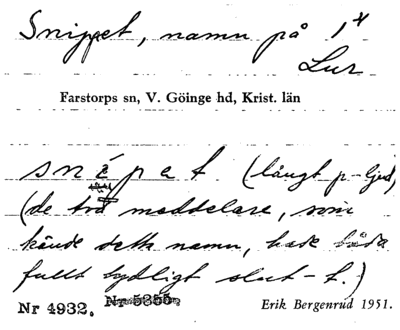 Snippet, namn på 1 4
Lur
Farstorps sn, V. Göinge hd, Krist. län
snépat (långt p-ljud)
(de två meddelare, som
kände detta namn, hade båda
fullt tydligt slut-t.)
Nr 4932. Nr 5355
Erik Bergenrud 1951.